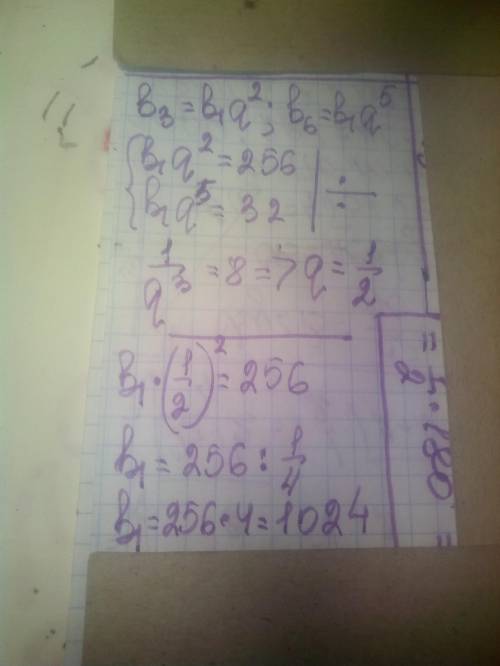 b₃ = b₁q²; b₆ = b₁q⁵
{ b₁q² = 256
{ b₁q⁵ = 32 | ÷
1/q³ = 8 => q = 1/2
b₁ · (1/2)² = 256
b₁ = 256 : 1/4
b₁ = 256 · 4 = 1024